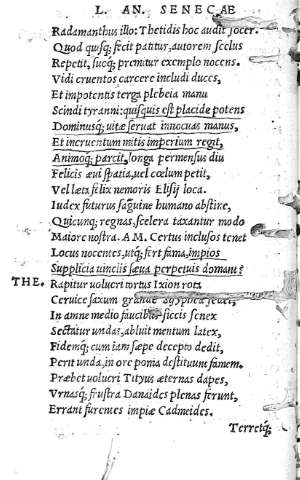 L. AN. SENECAE
Radamanthus illo: Thetidis hoc audit socer.
Quod quisq; fecit patitur, autorem scelus
Repetit, suoq; premitur exemplo nocens.
Vidi cruentos carcere includi duces,
Et impotentis terga plebeia manu
Scindi tyranni: quisquis est placide potens
Dominusq; uitæ seruat innocuas manus,
Et incruentum mitis imperium regit,
Animoq; parcit, longa permensus diu
Felicis æui spatia, uel cœlum petit,
Vel læta felix nemoris Elisij loca.
Iudex futurus saguine humano abstine,
Quicunq; regnas, scelera taxantur modo
Maiore nostra. A M. Certus inclusos tenet
Locus nocentes, utq; fert fama, impios
Supplicia uinclis sæua perpetuis domant?
THE. Rapitur uolucri tortus Ixion rota
Ceruice saxum grande Sisyphea sedet,
In amne medio faucibus siccis senex
Sectatur undas, abluit mentum latex,
Fidemq; cum iam sæpe decepto dedit,
Perit unda, in ore poma destituunt famem.
Præbet uolucri Tityus æternas dapes,
Vrnasq; frustra Danaides plenas ferunt,
Errant furentes impiæ Cadmeides.
Terretq;